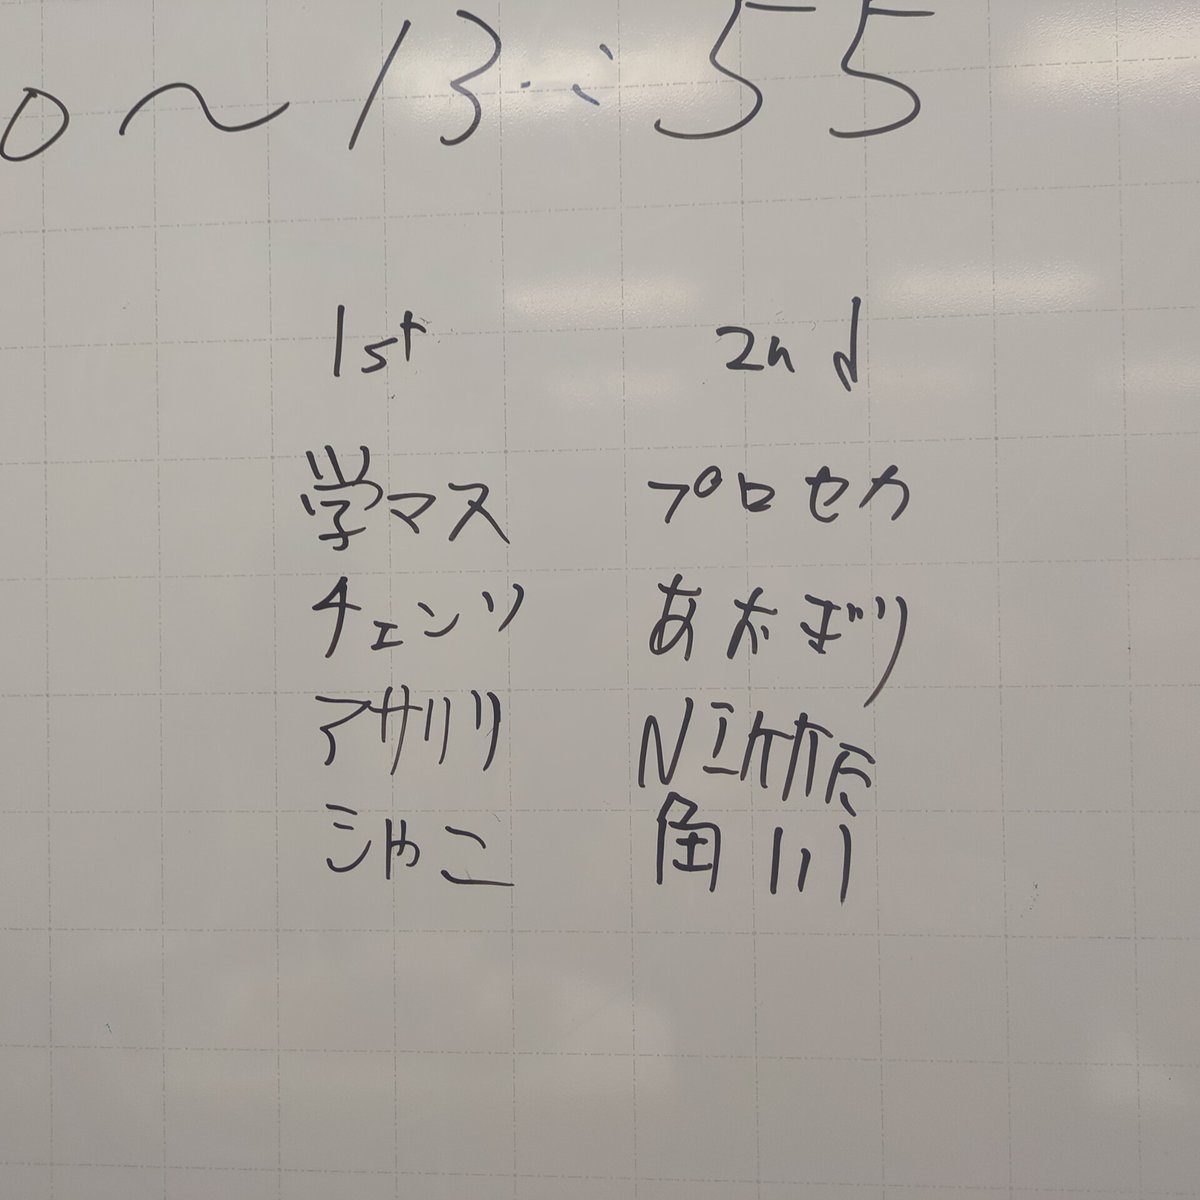 0～13:55
1st 2nd
学マス プロセカ
チェンソ あおぎり
アサリリ
シャニ 角川